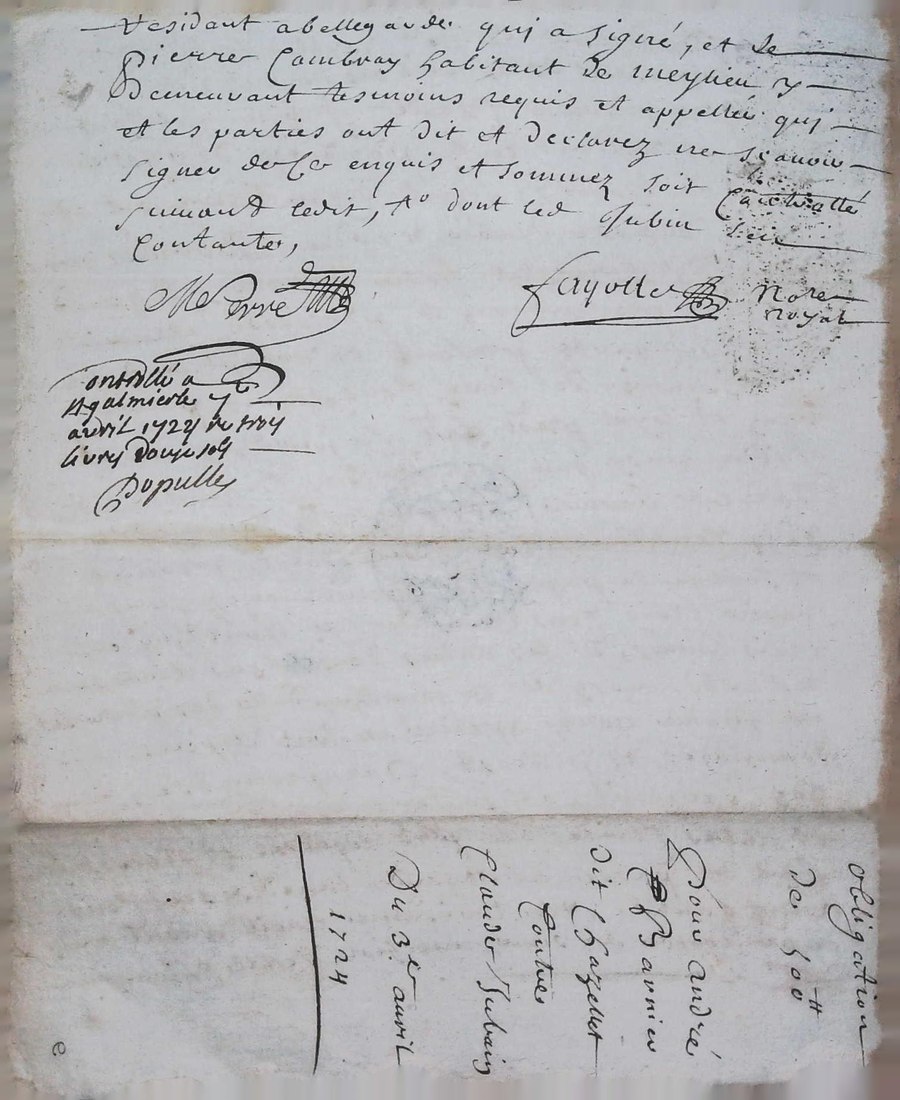 residant a bellegarde qui a signé, et de
pierre Cambray habitant de meylieu y
demeurant tesmoins requis et appellés qui
et les parties ont dit et declarez ne scavoir
signer de ce enquis et sommez soit Controllé
suivant ledit, dont led Jubin
Contantes,
Fayolle Notre
Royal
ontrollé a
St galmier le 7e
avril 1724 re trois
livres douze sols
Dupulle
obligation
de 500 ₶
Pour andré
Barnier
dit Chazellet
Contre
Claude Jubain
Du 3e avril
1724
e